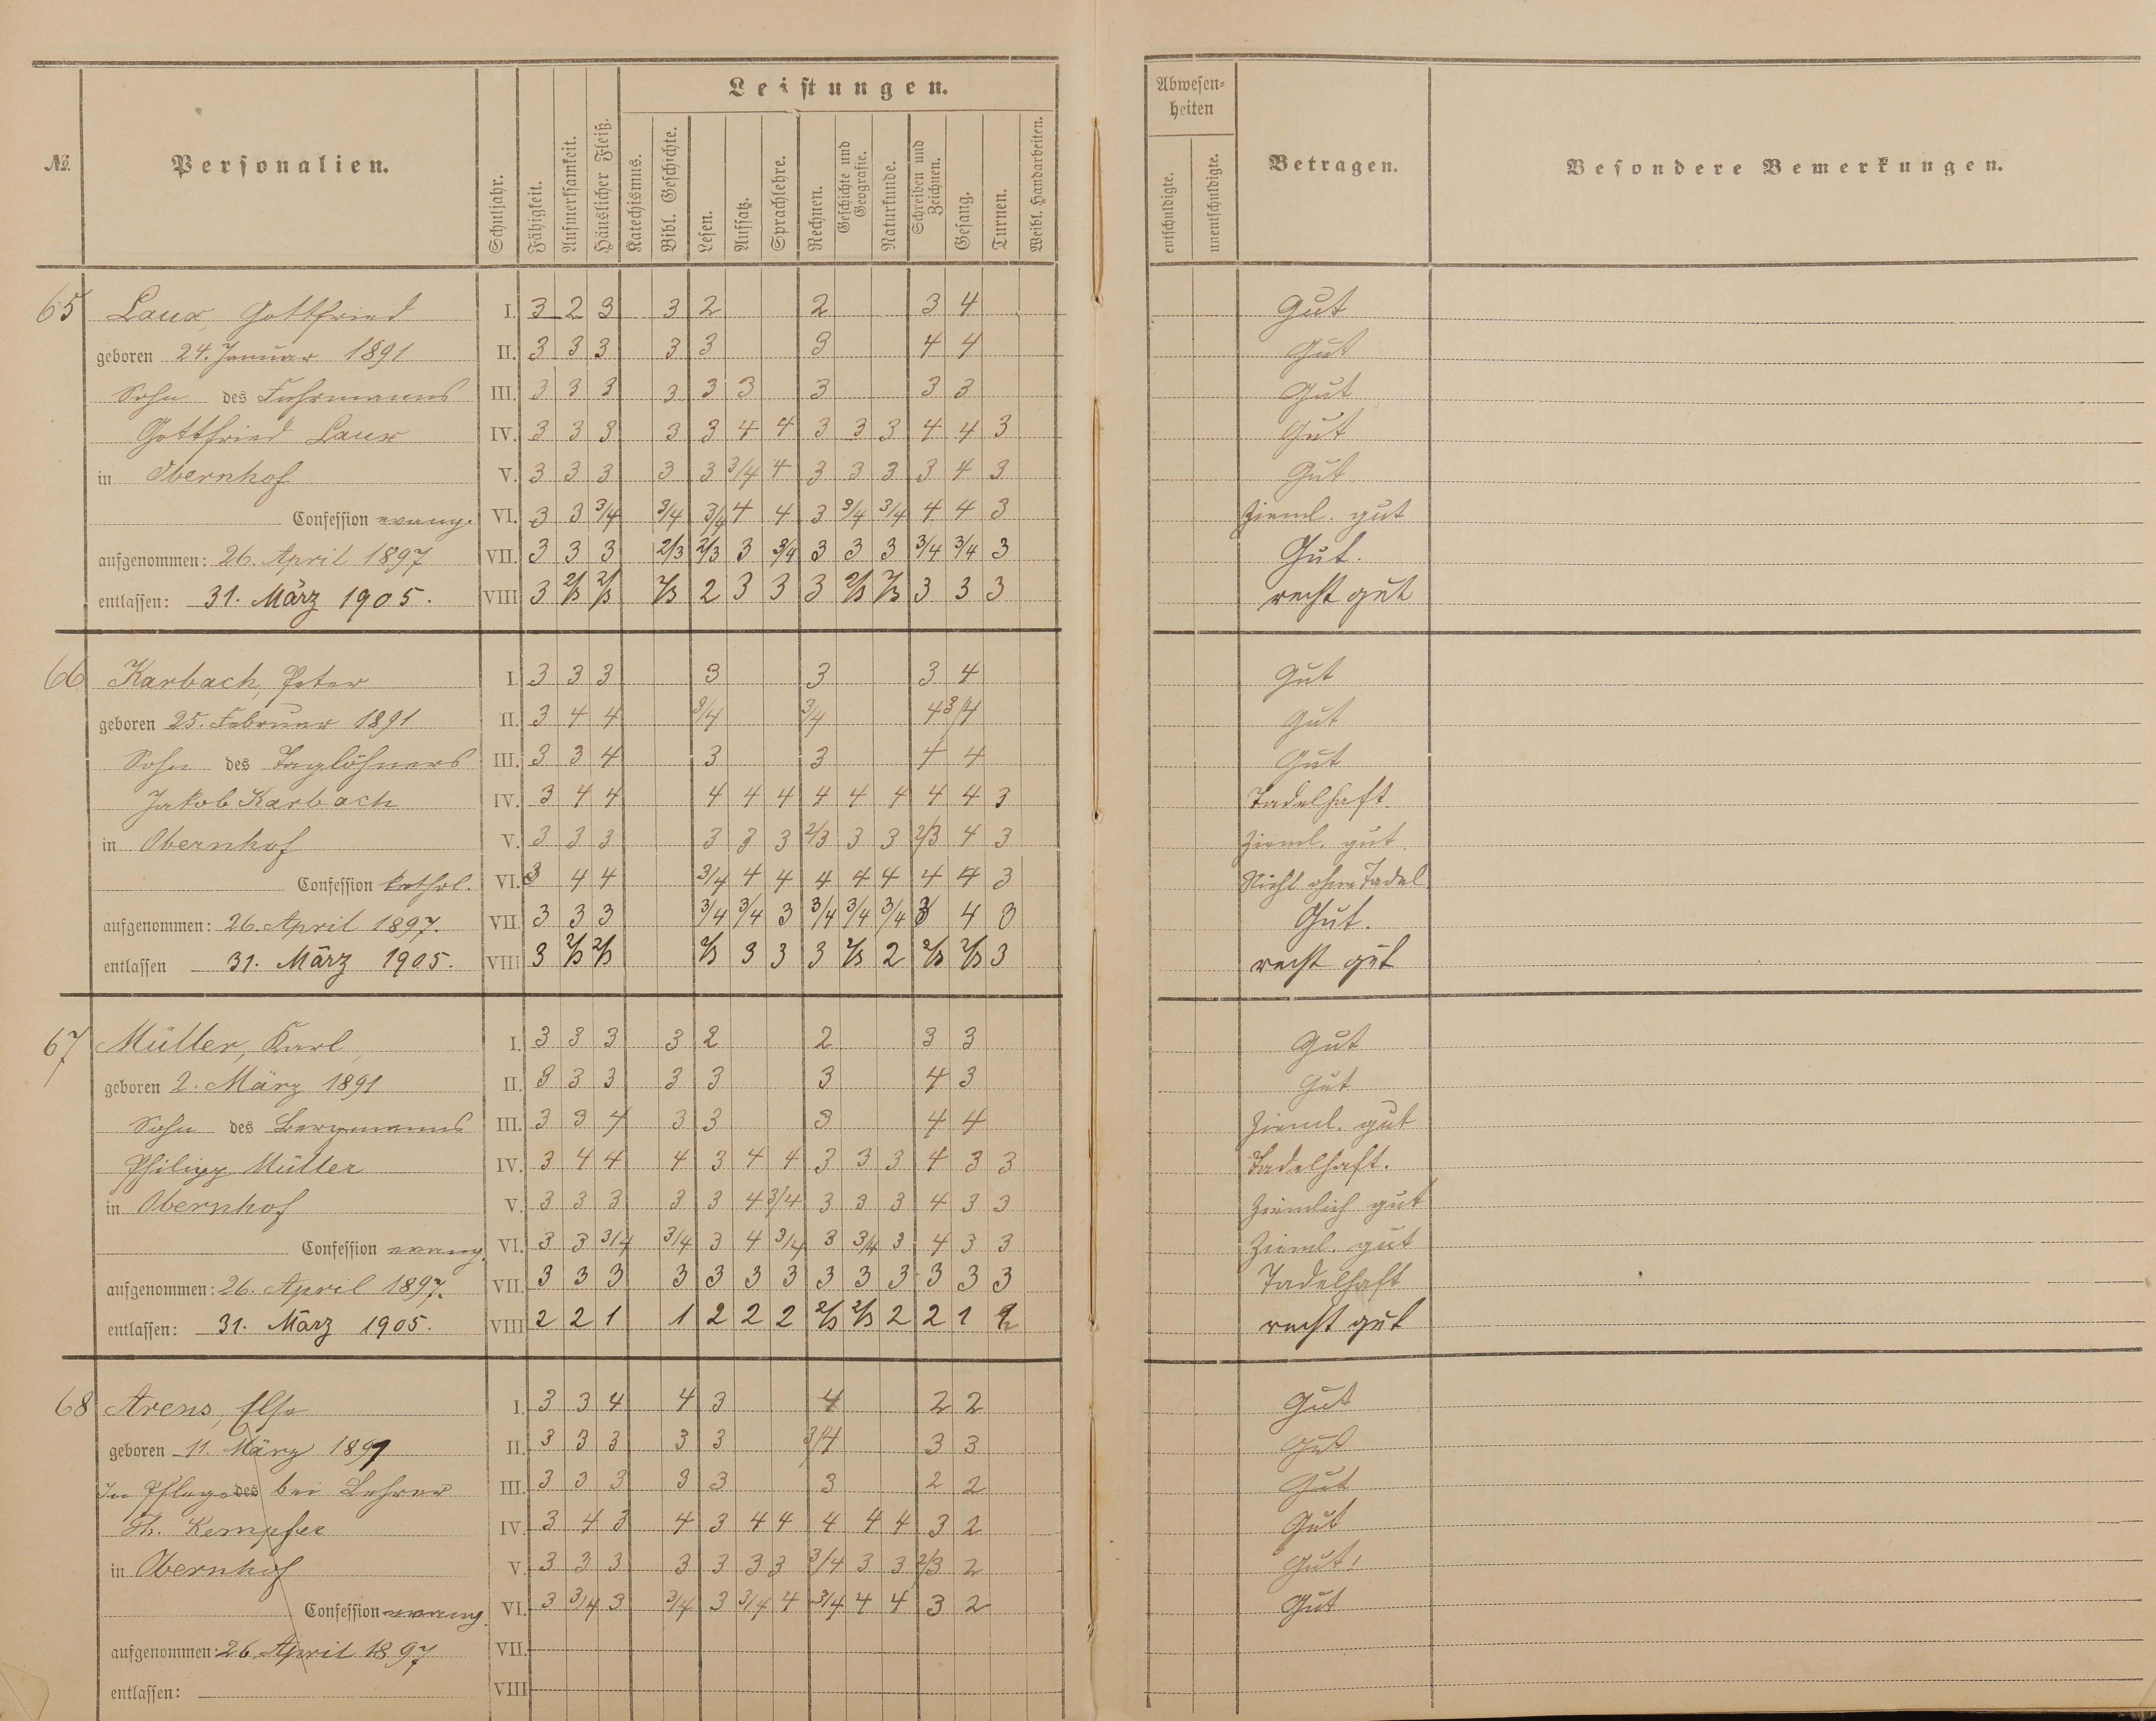 Leistungen.
Abwesen-
heiten
№. Personalien. Schuljahr. Fähigkeit. Aufmerksamkeit. Häuslicher Fleiß. Katechismus. Bibl. Geschichte. Lesen. Aufsatz. Sprachlehre. Rechnen. Geschichte und Geografie. Naturkunde. Schreiben und Zeichnen. Gesang. Turnen. Weibl. Handarbeiten. entschuldigte. unentschuldigte. Betragen. Besondere Bemerkungen.
65 Laux, Gottfried I. 3 2 3 3 2 2 3 4 Gut
geboren 24. Januar 1891 II. 3 3 3 3 3 3 4 4 Gut
Sohn des Fuhrmanns III. 3 3 3 3 3 3 3 3 3 Gut
Gottfried Laux IV. 3 3 3 3 3 4 4 3 3 3 4 4 3 Gut
in Obernhof V. 3 3 3 3 3 3/4 4 3 3 3 3 4 3 Gut
Confession evang. VI. 3 3 3/4 3/4 3/4 4 4 3 3/4 3/4 4 4 3 Zieml. gut
aufgenommen: 26. April 1897 VII. 3 3 3 2/3 2/3 3 3/4 3 3 3 3/4 3/4 3 Gut.
entlassen: 31. März 1905. VIII 3 2/3 2/3 2/3 2 3 3 3 2/3 2/3 3 3 3 recht gut
66 Karbach, Peter I. 3 3 3 3 3 3 4 Gut
geboren 25. Februar 1891 II. 3 4 4 3/4 3/4 4 3/4 Gut
Sohn des Taglöhners III. 3 3 4 3 3 4 4 Gut
Jakob Karbach IV. 3 4 4 4 4 4 4 4 4 4 4 3 Tadelhaft.
in Obernhof V. 3 3 3 3 3 3 2/3 3 3 2/3 4 3 Zieml. gut.
Confession kathol. VI. 3 4 4 3/4 4 4 4 4 4 4 4 3 Nicht ohne Tadel.
aufgenommen: 26. April 1897. VII. 3 3 3 3/4 3/4 3 3/4 3/4 3/4 3 4 3 Gut.
entlassen 31. März 1905. VIII 3 2/3 2/3 2/3 3 3 3 2/3 2 2/3 2/3 3 recht gut
67 Müller, Karl, I. 3 3 3 3 2 2 3 3 Gut
geboren 2. März 1891 II. 3 3 3 3 3 3 4 3 Gut
Sohn des Bergmanns III. 3 3 4 3 3 3 4 4 Zieml. gut
Philipp Müller IV. 3 4 4 4 3 4 4 3 3 3 4 3 3 Tadelhaft.
in Obernhof V. 3 3 3 3 3 4 3/4 3 3 3 4 3 3 Ziemlich gut
Confession evang. VI. 3 3 3/4 3/4 3 4 3/4 3 3/4 3 4 3 3 Zieml. gut
aufgenommen: 26. April 1897. VII. 3 3 3 3 3 3 3 3 3 3 3 3 3 Tadelhaft
entlassen: 31. März 1905. VIII 2 2 1 1 2 2 2 2/3 2/3 2 2 1 2 recht gut
68 Arens, Else I. 3 3 4 4 3 4 2 2 Gut
geboren 11. März 1891 II. 3 3 3 3 3 3/4 3 3 Gut
In Pflege des bei Lehrer III. 3 3 3 3 3 3 2 2 Gut
Th. Kempfer IV. 3 4 3 4 3 4 4 4 4 4 3 2 Gut
in Obernhof V. 3 3 3 3 3 3 3 3/4 3 3 2/3 2 Gut!
Confession evang. VI. 3 3/4 3 3/4 3 3/4 4 3/4 4 4 3 2 Gut
aufgenommen: 26. April 1897 VII.
entlassen: VIII